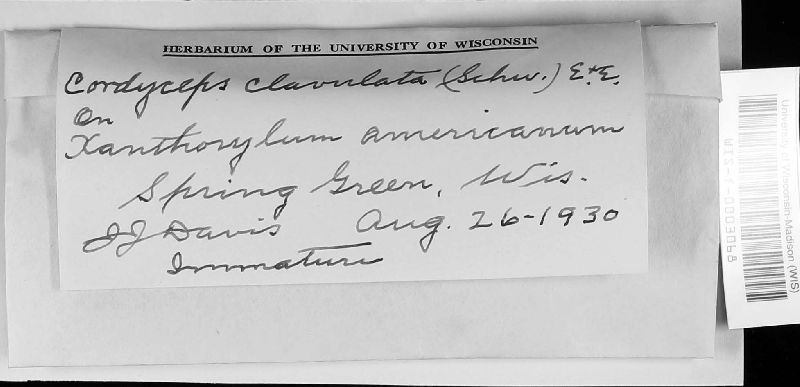 HERBARIUM OF THE UNIVERSITY OF WISCONSIN
Cordyceps clavulata (Schw.) E. & E.
On
Xanthoxylum americanum
Spring Green, Wis.
JJ Davis Aug. 26-1930
Immature
University of Wisconsin-Madison (WIS)